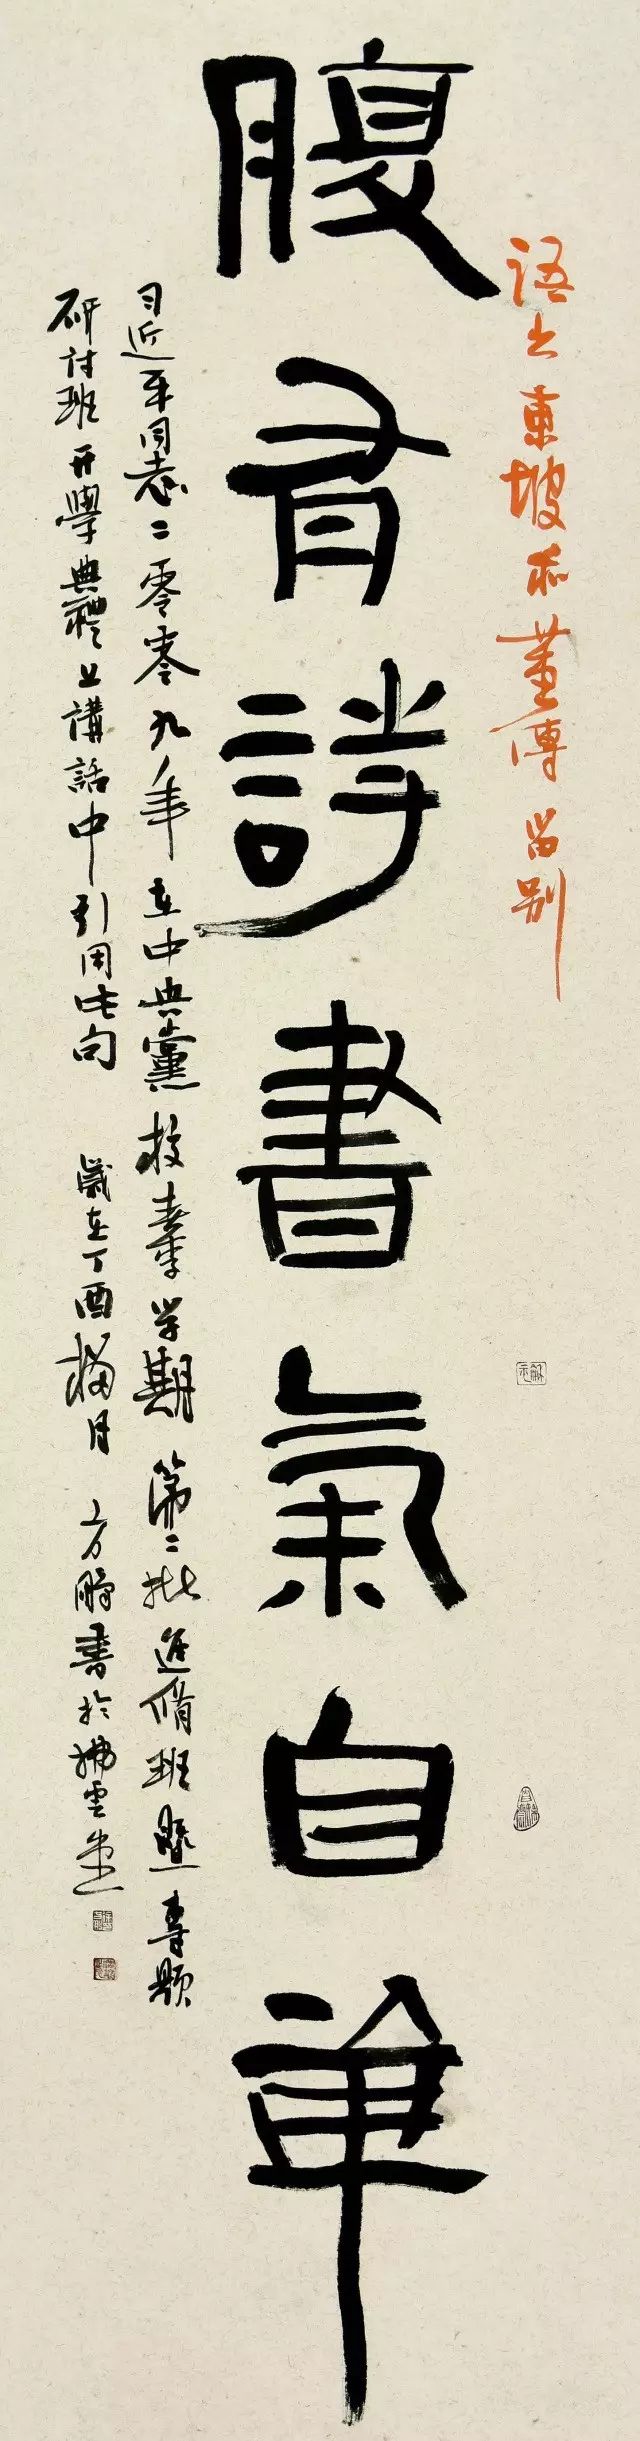 語出東坡和董傳留別
腹有詩書氣自華
习近平同志二零零九年在中央黨校春季学期第二批进修班暨專题
研讨班开學典禮上講話中引用此句 歲在丁酉梅月 方鵬書於拂雲堂